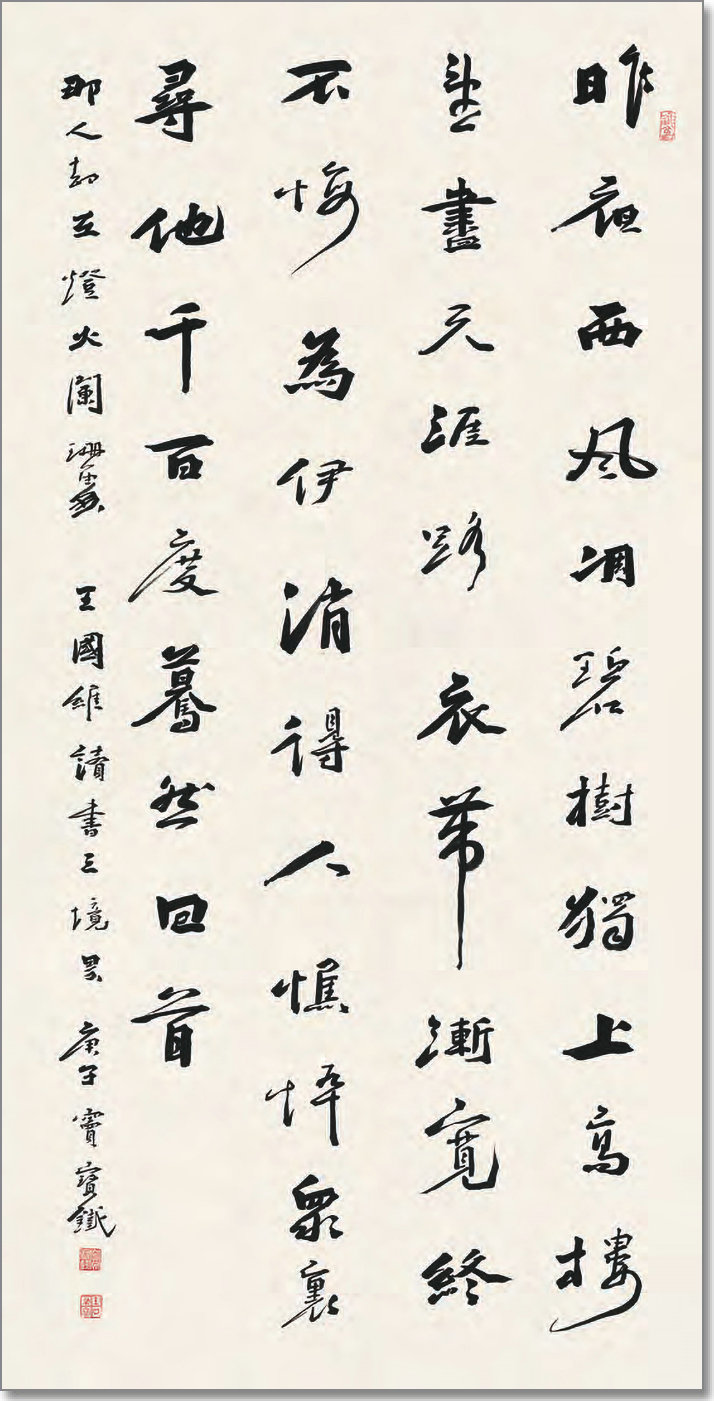 昨夜西风凋碧樹獨上高樓
望盡天涯路衣帶漸寬終
不悔為伊消得人憔悴衆裏
尋他千百度驀然回首
那人却在燈火闌珊處 王國維讀書三境界 庚子 竇寶鐵